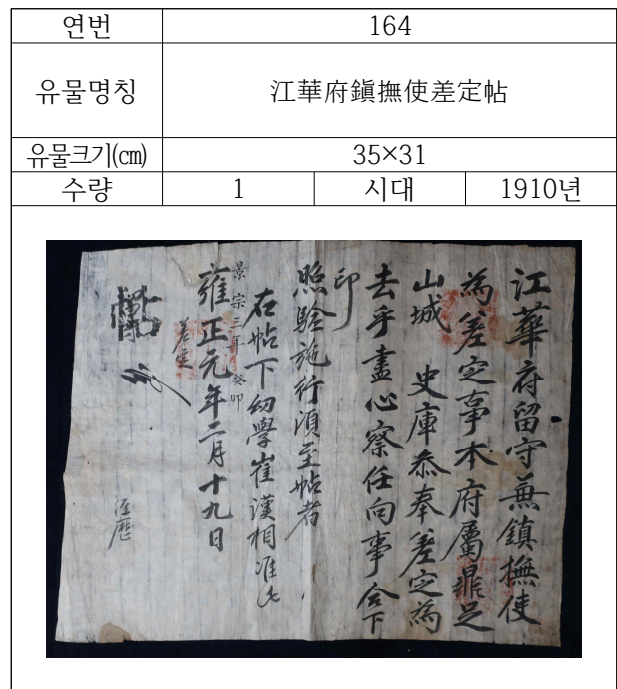 연번 164
유물명칭 江華府鎭撫使差定帖
유물크기(㎝) 35×31
수량 1 시대 1910년
江華府留守兼鎮撫使
為差定事本府屬鼎足
山城 史庫叅奉差定為
去乎盡心察任向事合下
印
照驗施行須至帖者
右帖下幼學崔漢相准此
景宗三年癸卯
雍正元年二月十九日
差定
經歷